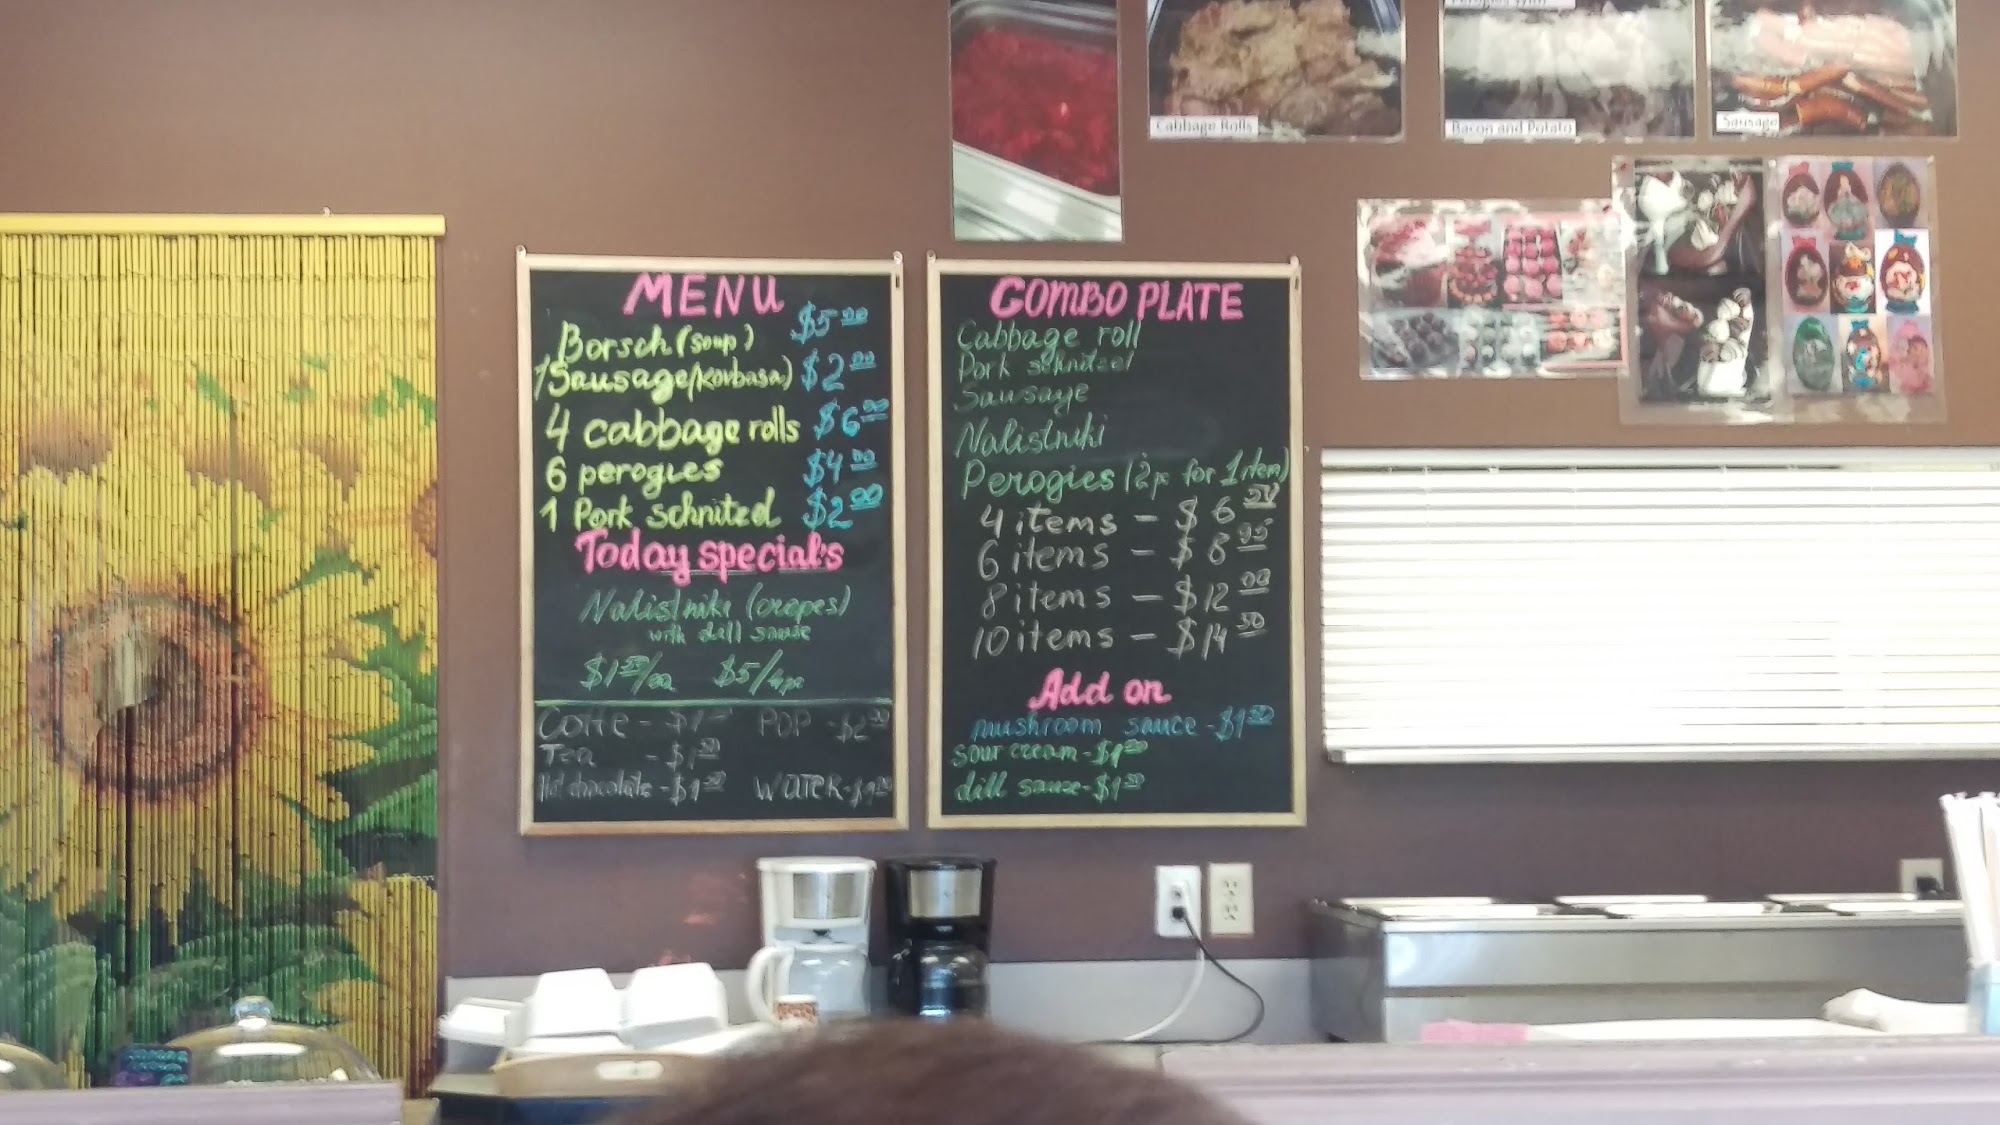 MENU
Borsch (soup) $5.00
1 Sausage (Kovbasa) $2.00
4 cabbage rolls $6.00
6 perogies $4.00
1 Pork schnitzel $2.00
Today specials
Nalistniki (crepes)
with dill sause
$1.50/ea $5/4pc
POP - $2.00
Tea - $1.50
Hot chocolate - $1.50 WATER - $1.00
COMBO PLATE
Cabbage roll
Pork schnitzel
Sausage
Nalistniki
Perogies (2pc for 1 item)
4 items - $6.50
6 items - $8.95
8 items - $12.00
10 items - $14.50
Add on
mushroom sauce - $1.50
sour cream - $1.00
dill sause - $1.50
Cabbage Rolls
Perogies With
Bacon and Potato
Sausage